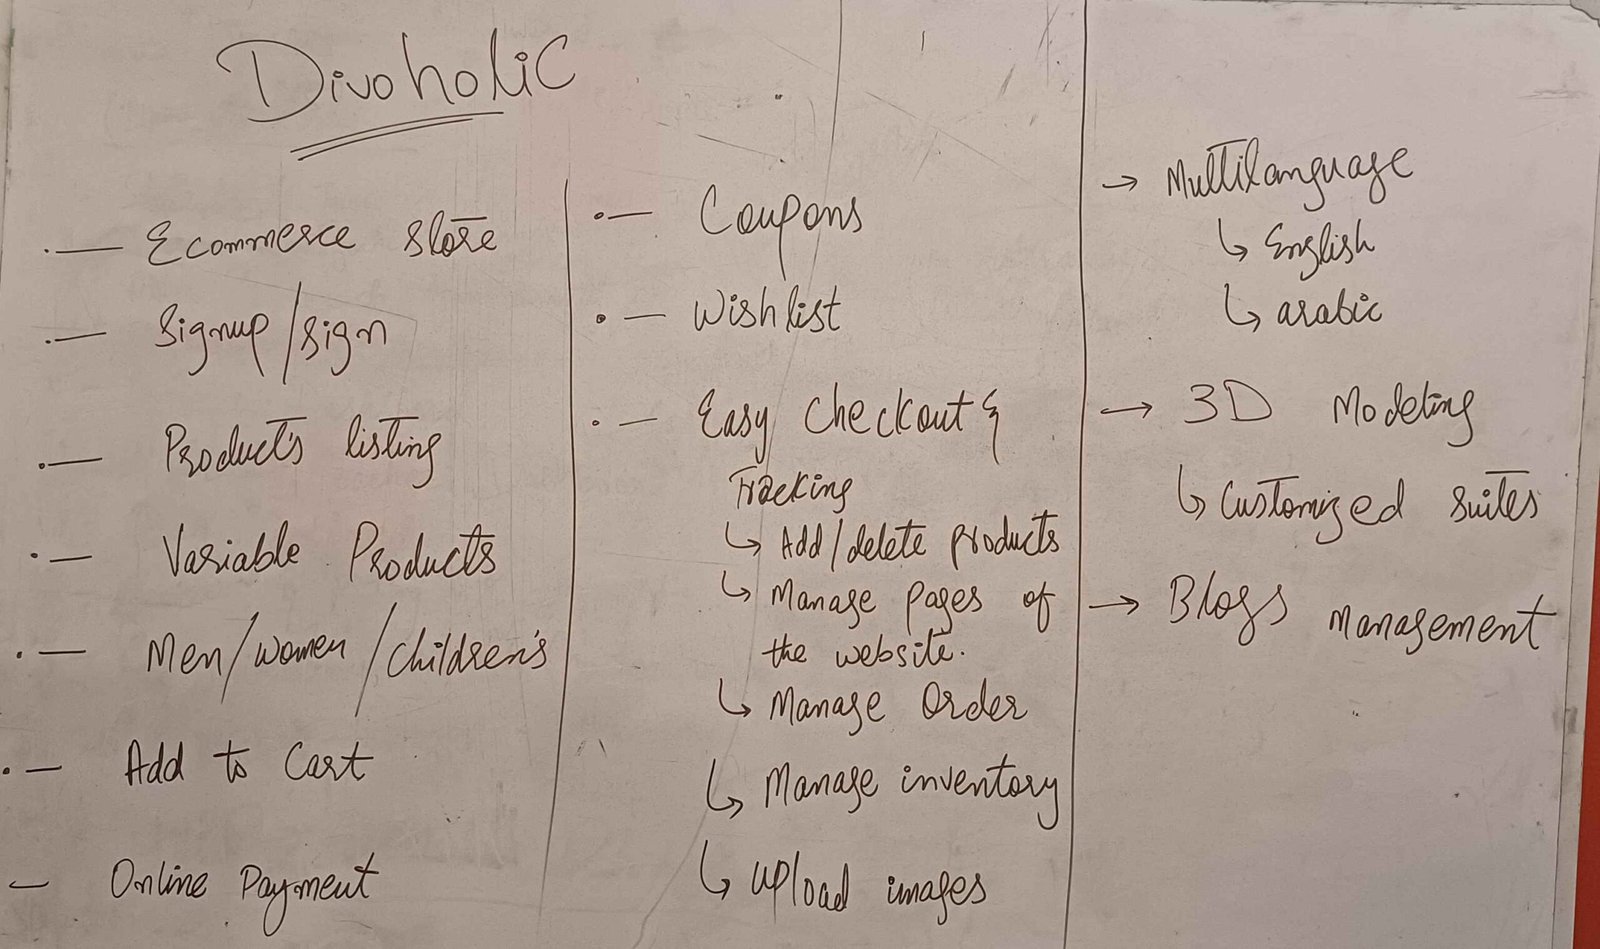 Divoholic
Ecommerce store
Signup/sign
Products listing
Variable Products
Men/women/children's
Add to Cart
Online Payment
Coupons
Wishlist
Easy checkout &
Tracking
Add/delete products
Manage pages of
the website.
Manage Order
Manage inventory
upload images
Multilanguage
English
arabic
3D Modeling
Customized suites
Blogs management